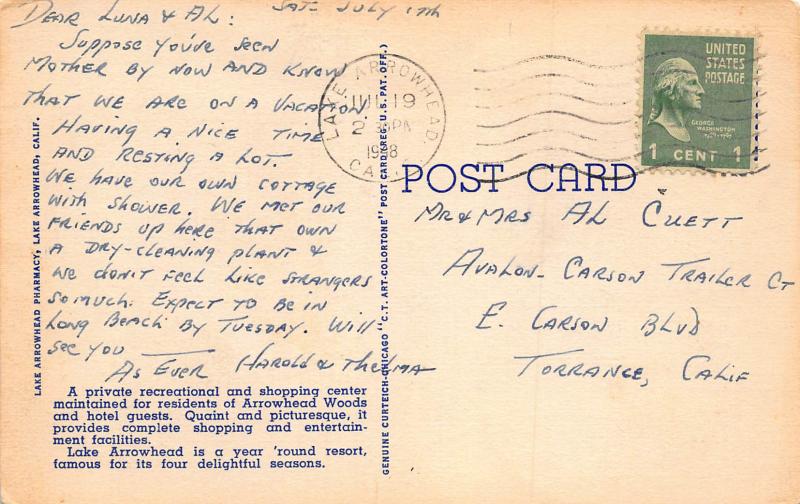 Dear Luna & Al:
Sat- July 17th
Suppose you've seen
Mother by now and know
that we are on a vacation.
Having a nice time
and resting a lot.
We have our own cottage
with shower. We met our
friends up here that own
a dry-cleaning plant &
we don't feel like strangers
so much. Expect to be in
Long Beach by Tuesday. Will
see you
As Ever Harold & Thelma
A private recreational and shopping center
maintained for residents of Arrowhead Woods
and hotel guests. Quaint and picturesque, it
provides complete shopping and entertain-
ment facilities.
Lake Arrowhead is a year 'round resort,
famous for its four delightful seasons.
LAKE ARROWHEAD PHARMACY, LAKE ARROWHEAD, CALIF.
GENUINE CURTEICH-CHICAGO "C.T. ART-COLORTONE" POST CARD (REG. U.S. PAT. OFF.)
LAKE ARROWHEAD,
JUL 19
2 30PM
1948
CALIF.
UNITED
STATES
POSTAGE
GEORGE
WASHINGTON
1 CENT 1
POST CARD
Mr & Mrs Al Cuett
Avalon-Carson Trailer Ct
E. Carson Blvd
Torrance, Calif